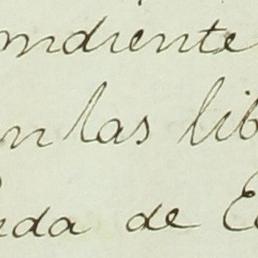 ndiente
n las lib
eda de E